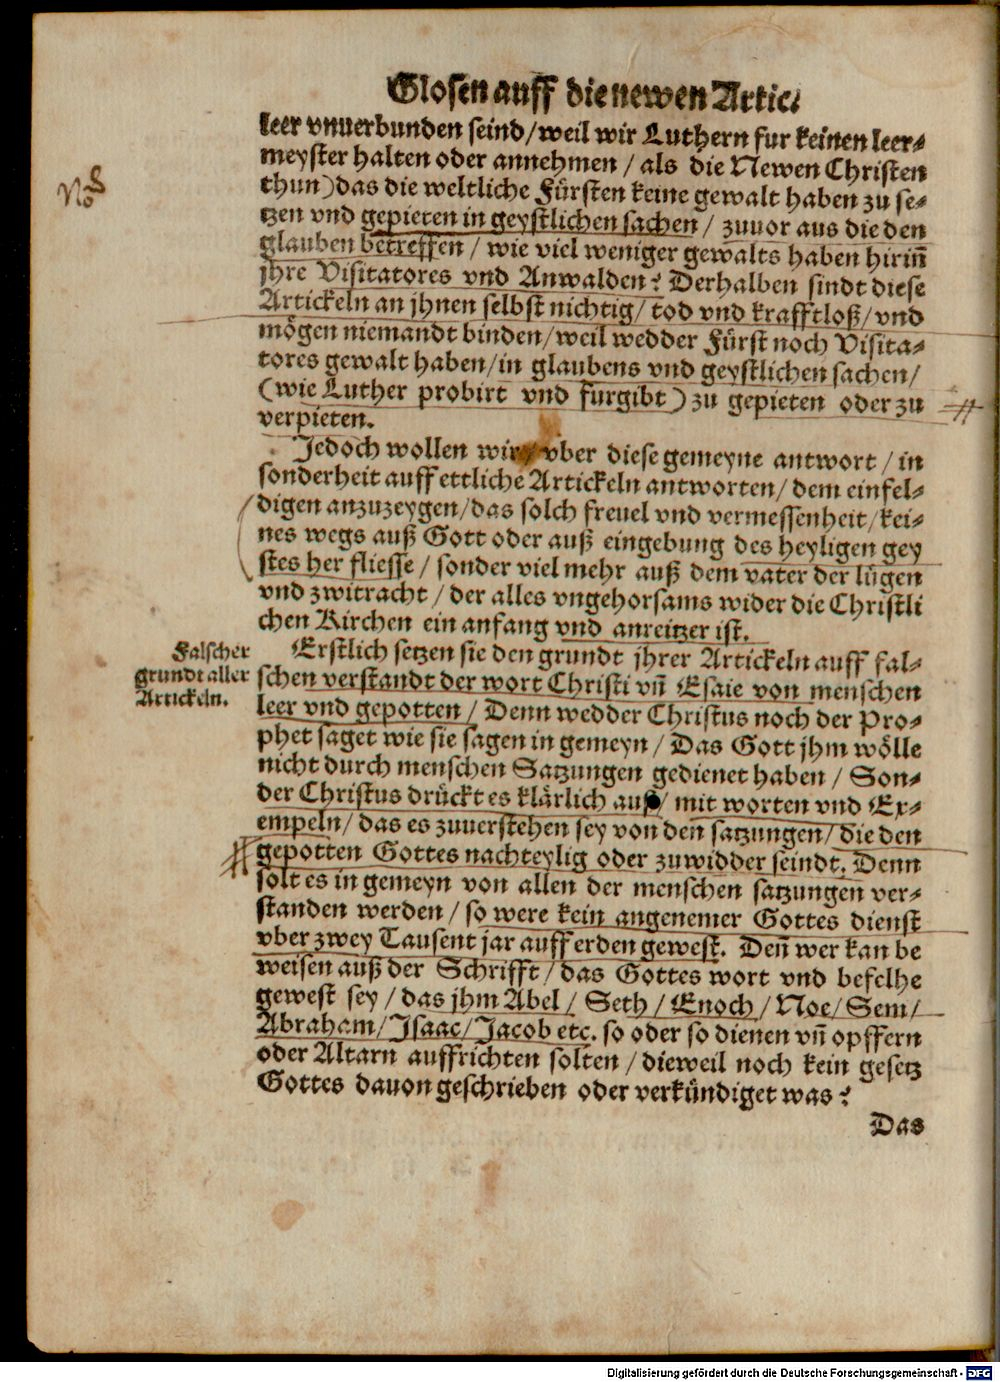 Glosen auff die newen Artic⸗
leer vnuerbunden seind/weil wir Luthern fur keinen leer⸗
meyster halten oder annehmen / als die Newen Christen
thun) das die weltliche Fürsten keine gewalt haben zu se⸗
No
tzen vnd gepieten in geystlichen sachen / zuuor aus die den
glauben betreffen / wie viel weniger gewalts haben hirinn̄
jhre Visitatores vnd Anwalden? Derhalben sindt diese
Artickeln an jhnen selbst nichtig/ tod vnd krafftloß/ vnd
mögen niemandt binden/weil wedder Fürst noch Visita⸗
tores gewalt haben/in glaubens vnd geystlichen sachen/
(wie Luther probirt vnd furgibt) zu gepieten oder zu
verpieten.
Jedoch wollen wir vber diese gemeyne antwort / in
sonderheit auff ettliche Artickeln antworten/ dem einfel⸗
digen anzuzeygen/das solch freuel vnd vermessenheit/kei⸗
nes wegs auß Gott oder auß eingebung des heyligen gey
stes her fliesse / sonder viel mehr auß dem vater der lügen
vnd zwitracht / der alles vngehorsams wider die Christli
chen Kirchen ein anfang vnd anreitzer ist.
Falscher
grundt aller
Artickeln.
Erstlich setzen sie den grundt jhrer Artickeln auff fal⸗
schen verstandt der wort Christi vn̄ Esaie von menschen
leer vnd gepotten / Denn wedder Christus noch der Pro⸗
phet saget wie sie sagen in gemeyn / Das Gott jhm wölle
nicht durch menschen Satzungen gedienet haben / Son⸗
der Christus drückt es klärlich auß/ mit worten vnd Ex⸗
empeln/ das es zuuerstehen sey von den satzungen/ die den
gepotten Gottes nachteylig oder zuwidder seindt. Denn
solt es in gemeyn von allen der menschen satzungen ver⸗
standen werden / so were kein angenemer Gottes dienst
vber zwey Tausent jar auff erden gewest. Den̄ wer kan be
weisen auß der Schrifft/ das Gottes wort vnd befelhe
gewest sey / das jhm Abel / Seth / Enoch / Noe/ Sem/
Abraham/ Isaac/ Jacob etc. so oder so dienen vn̄ opffern
oder Altarn auffrichten solten / dieweil noch kein gesetz
Gottes dauon geschrieben oder verkündiget was?
Das
Digitalisierung gefördert durch die Deutsche Forschungsgemeinschaft - DFG